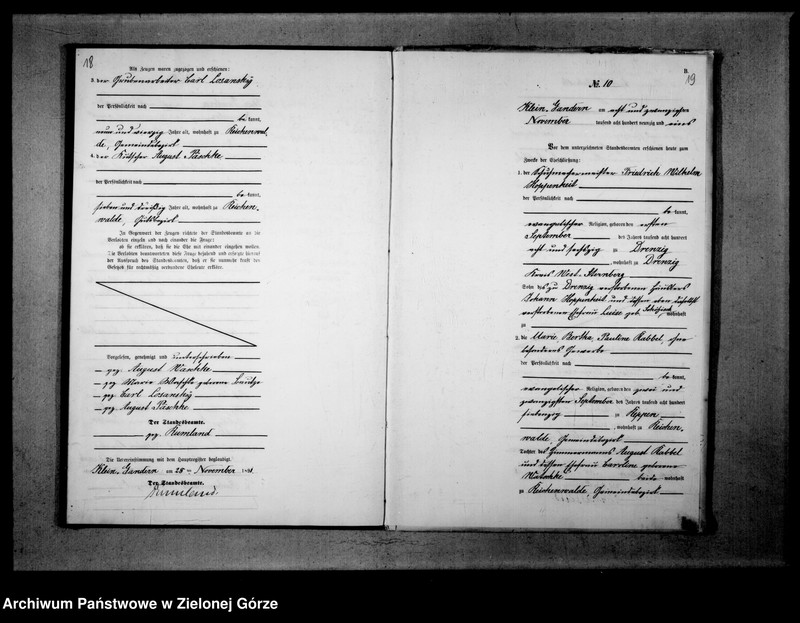 18
Als Zeugen waren zugezogen und erschienen:
3. der Grubenarbeiter Carl Losansky
der Persönlichkeit nach
be kannt,
neun und vierzig Jahre alt, wohnhaft zu Reichenwal-
de, Gemeindebezirk
4. der Kutscher August Paschke
der Persönlichkeit nach
be kannt,
sieben und dreißig Jahre alt, wohnhaft zu Reichen-
walde, Gutsbezirk
In Gegenwart der Zeugen richtete der Standesbeamte an die
Verlobten einzeln und nach einander die Frage:
ob sie erklären, daß sie die Ehe mit einander eingehen wollen.
Die Verlobten beantworteten diese Frage bejahend und erfolgte hierauf
der Ausspruch des Standesbeamten, daß er sie nunmehr kraft des
Gesetzes für rechtmäßig verbundene Eheleute erkläre.
Vorgelesen, genehmigt und unterschrieben
gez. August
gez. Marie geborene
gez. Carl Losansky
gez. August Paschke
Der Standesbeamte.
gez. Rumland
Die Uebereinstimmung mit dem Hauptregister beglaubigt.
Klein-Gandern am 28 ten November 1891
Der Standesbeamte.
Rumland.
B.
19
№ 10
Klein-Gandern am acht und zwanzigsten
November tausend acht hundert neunzig und eins
Vor dem unterzeichneten Standesbeamten erschienen heute zum
Zwecke der Eheschließung:
1. der Schuhmachermeister Friedrich Wilhelm
Hoppenheit
der Persönlichkeit nach
be kannt,
evangelischer Religion, geboren den ersten
September des Jahres tausend acht hundert
acht und sechszig zu Drenzig
, wohnhaft zu Drenzig
Kreis West-Sternberg
Sohn des zu Drenzig verstorbenen Häuslers
Johann Hoppenheit und dessen eben daselbst
verstorbener Ehefrau Luise geb. wohnhaft
zu
2. die Marie Bertha Pauline Rabbel, ohne
besonderes Gewerbe
der Persönlichkeit nach
be kannt,
evangelischer Religion, geboren den zwei und
zwanzigsten September des Jahres tausend acht hundert
siebenzig zu Reppen
, wohnhaft zu Reichen-
walde, Gemeindebezirk
Tochter des Zimmermanns August Rabbel
und dessen Ehefrau Caroline geborene
beide wohnhaft
zu Reichenwalde, Gemeindebezirk
Archiwum Państwowe w Zielonej Górze